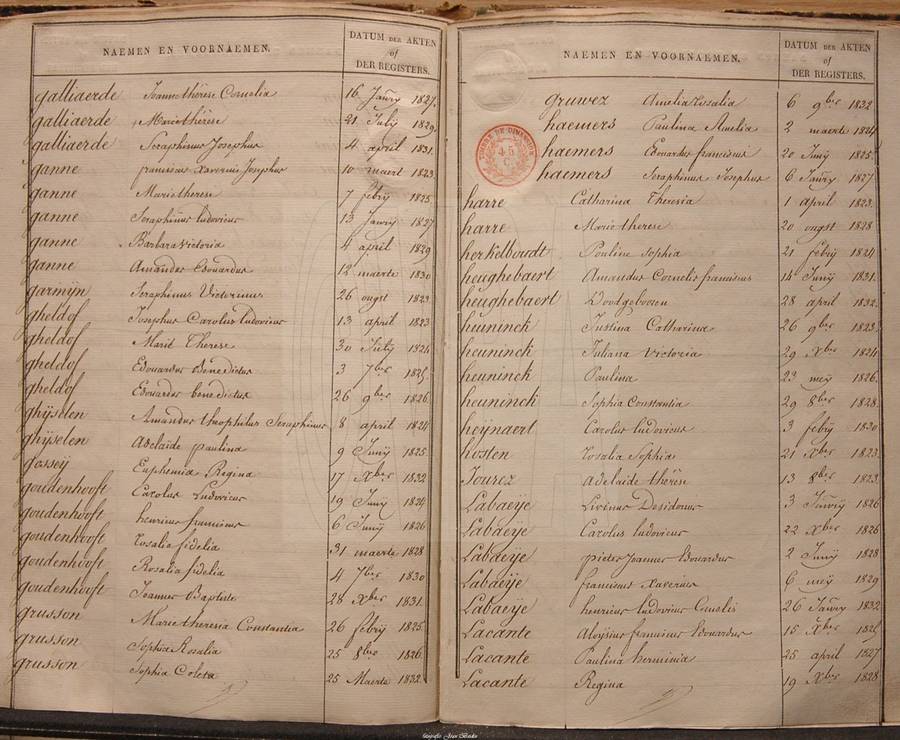 NAEMEN EN VOORNAEMEN.
DATUM DER AKTEN
of
DER REGISTERS.
galliaerde Joanne thérese Cornelia 16 Janry 1827.
galliaerde Marie thérèse 21 July 1829
galliaerde Seraphinus Josephus 4 april 1831.
ganne franciscus Xaverius Josephus 10 maert 1823
ganne Marie therese 7 febry 1825
ganne Seraphinus ludovicus 13 Janry 1827
ganne Barbara Victoria 4 april 1829
ganne Amandus Edouardus 12 maerte 1830
garmijn Seraphinus Victorinus 26 ougst 1823
gheldof Josephus Carolus ludovicus 13 april 1823
gheldof Marie Therese 30 July 1824
gheldof Edouardus Benedictus 3 7ber 1825.
gheldof Edouardus benedictus 26 9ber 1826.
ghijselen Amandus theophilus Seraphinus 8 april 1824
ghijselen Adelaide paulina 9 Junij 1825.
gosseij Euphemia Regina 17 Xber 1832
goudenhooft Carolus Ludovicus 19 Junij 1824
goudenhooft henricus franciscus 6 Junij 1826
goudenhooft Rosalia fidelia 31 maerte 1828
goudenhooft Rosalia fidelia 4 7ber 1830
goudenhooft Joannes Baptiste 28 Xber 1831.
grusson Marie theresia Constantia 26 febrij 1825.
grusson Sophia Rosalia 25 8bre 1826
grusson Sophia Coleta 25 Maerte 1832.
NAEMEN EN VOORNAEMEN.
DATUM DER AKTEN
of
DER REGISTERS.
TIMBRE DE DIMENSION
45
C.
gruwez Amelia rosalia 6 9bre 1832
haemers Paulina Amelia 2 maerte 1824
haemers Edouardus franciscus 20 Junij 1825.
haemers Seraphinus Josephus 6 Janry 1827
harre Catharina Theresia 1 april 1823
harre Marie therese 20 ougst 1828
herkelboudt Pauline sophia 21 febry 1824
heughebaert Amandus Cornelis franciscus 14 Junij 1831.
heughebaert Doodgeboren 28 april 1832.
heuninck Justina Catharina 26 9ber 1823.
heuninck Juliana Victoria 29 Xber 1824
heuninck Paulina 23 meij 1826.
heuninck Sophia Constantia 29 8ber 1828.
heijnaert Carolus ludovicus 3 febry 1830
hosten Rosalia Sophia 21 Xber 1823.
Jourez Adelaide thérèse 13 8ber 1823.
Labaeije Livinus Desiderius 3 Janrij 1826
Labaeije Carolus ludovicus 22 Xber 1826
Labaeije pieter Joannes Edouardus 2 Junij 1828
Labaeije franciscus Xaverius 6 meij 1829
Labaeije henricus ludovicus Cornelis 26 Janry 1832
Lacante Aloijsius franciscus Edouardus 15 Xber
Lacante Paulina herminia 25 april 1827
Lacante Regina 19 Xber 1828